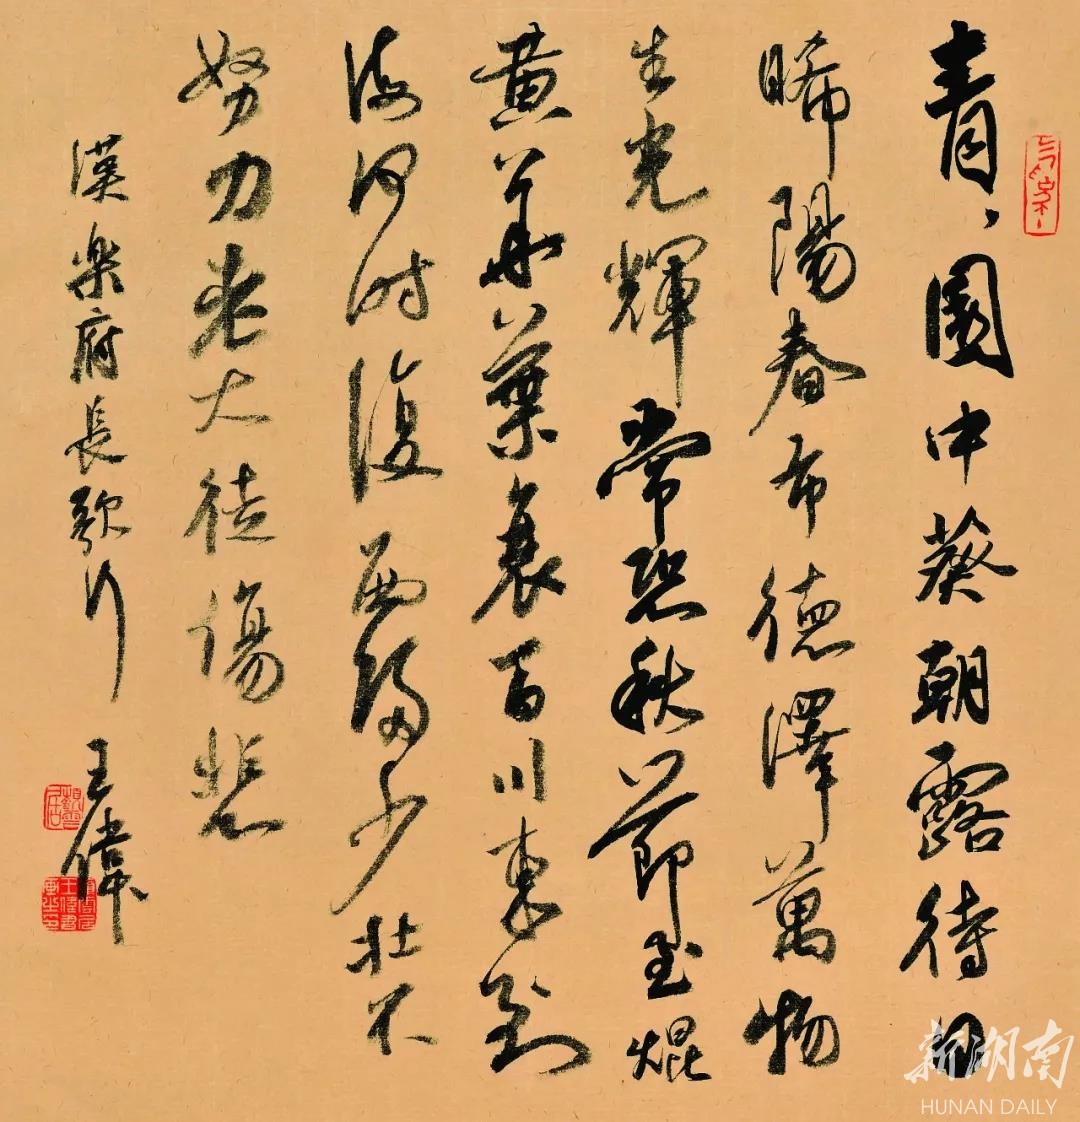 青、園中葵朝露待日
晞陽春布德澤萬物
生光輝常恐秋節至焜
黄華葉衰百川東到
海何時復西歸少壯不
努力老大徒傷悲
漢樂府長歌行
王偉
新湖南
HUNAN DAILY